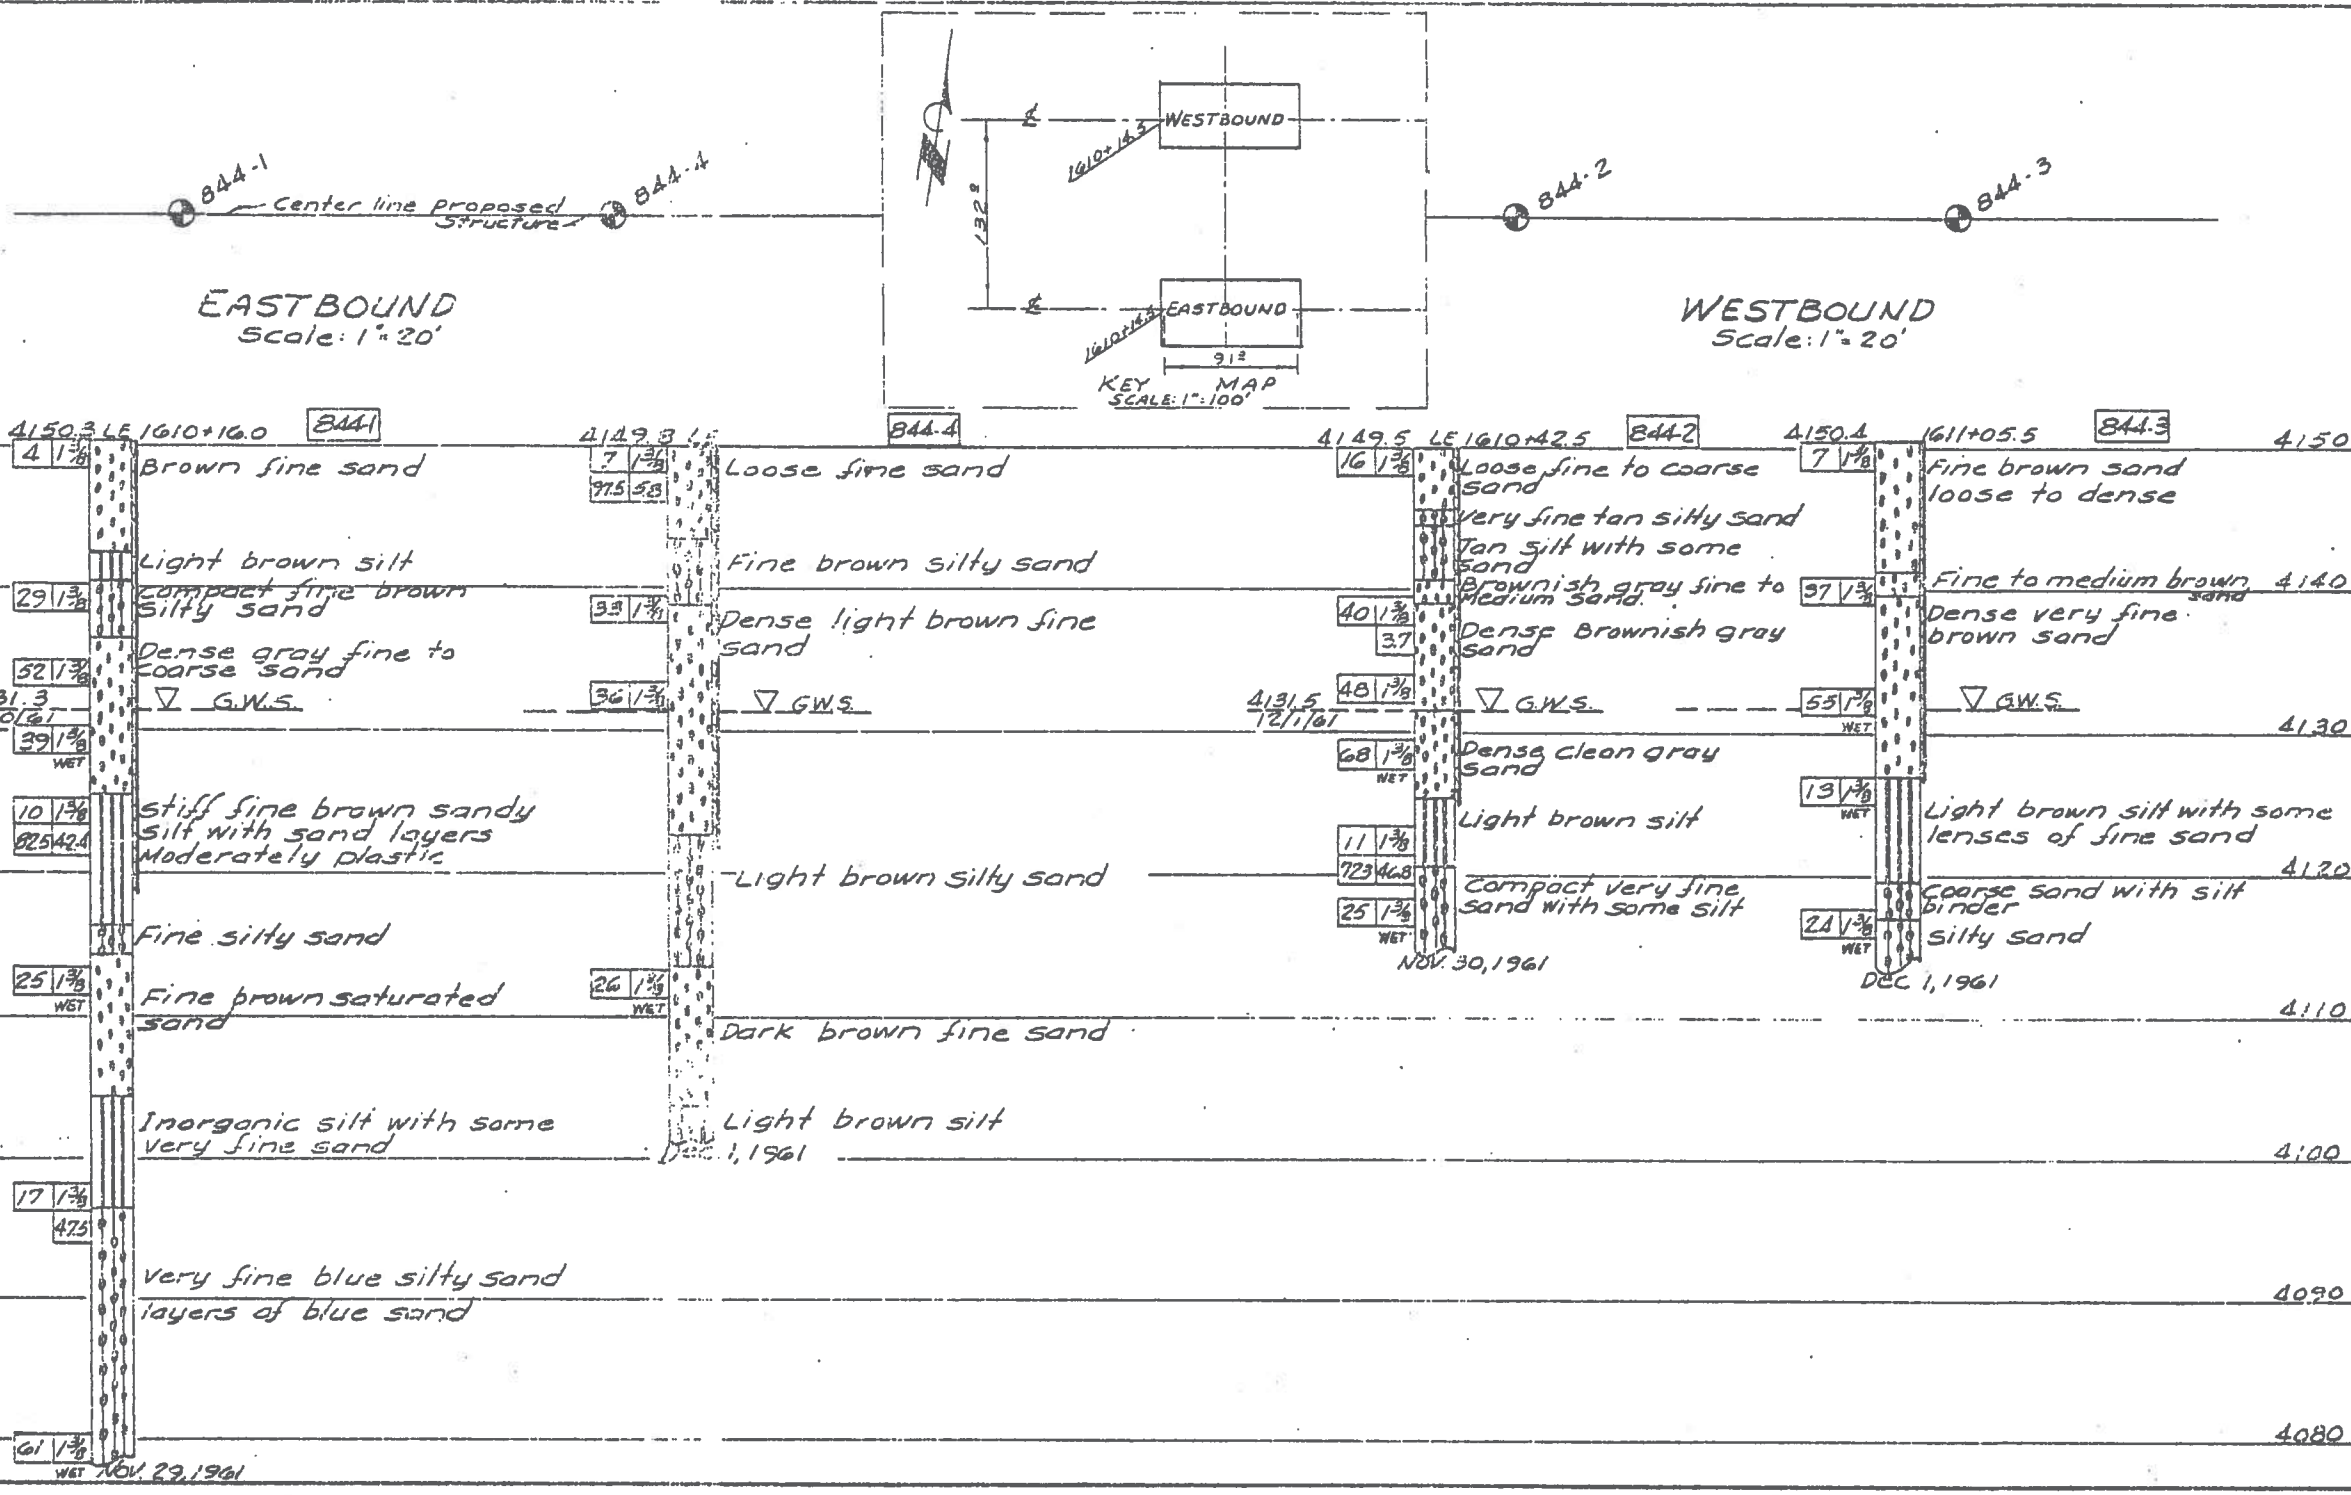 844-1
Center line proposed
Structure
844-4
EASTBOUND
Scale: 1"=20'
WESTBOUND
1610+14.5
132.0
EASTBOUND
1610+14.5
91.2
KEY MAP
SCALE: 1"=100'
844-2
844-3
WESTBOUND
Scale: 1"=20'
4150.3 LE 1610+16.0
844-1
4 1 3/8
Brown fine sand
Light brown silt
29 1 3/8
Compact fine brown
silty sand
Dense gray fine to
coarse sand
52 1 3/8
G.W.S.
39 1 3/8
WET
10 1 3/8
82.5 42.4
Stiff fine brown sandy
silt with sand layers
Moderately plastic
Fine silty sand
25 1 3/8
WET
Fine brown saturated
sand
Inorganic silt with some
very fine sand
17 1 3/8
47.5
Very fine blue silty sand
layers of blue sand
61 1 3/8
WET
NOV. 29, 1961
844-4
7 1 3/8
97.5 5.8
Loose fine sand
Fine brown silty sand
33 1 3/8
Dense light brown fine
sand
36 1 3/8
G.W.S.
Light brown silty sand
26 1 3/8
WET
Dark brown fine sand
Light brown silt
1, 1961
4149.5 LE 1610+42.5
844-2
16 1 3/8
Loose fine to coarse
sand
Very fine tan silty sand
Tan silt with some
sand
Brownish gray fine to
Medium sand.
40 1 3/8
3.7
Dense Brownish gray
sand
48 1 3/8
4131.5
12/1/61
G.W.S.
68 1 3/8
WET
Dense clean gray
sand
Light brown silt
11 1 3/8
72.3 46.8
Compact very fine
sand with some silt
25 1 3/8
WET
NOV. 30, 1961
4150.4 1611+05.5
844-3
7 1 3/8
Fine brown sand
loose to dense
37 1 3/8
Fine to medium brown
sand
Dense very fine
brown sand
55 1 3/8
WET
G.W.S.
13 1 3/8
WET
Light brown silt with some
lenses of fine sand
Coarse sand with silt
binder
24 1 3/8
WET
Silty sand
DEC 1, 1961
4150
4140
4130
4120
4110
4100
4090
4080